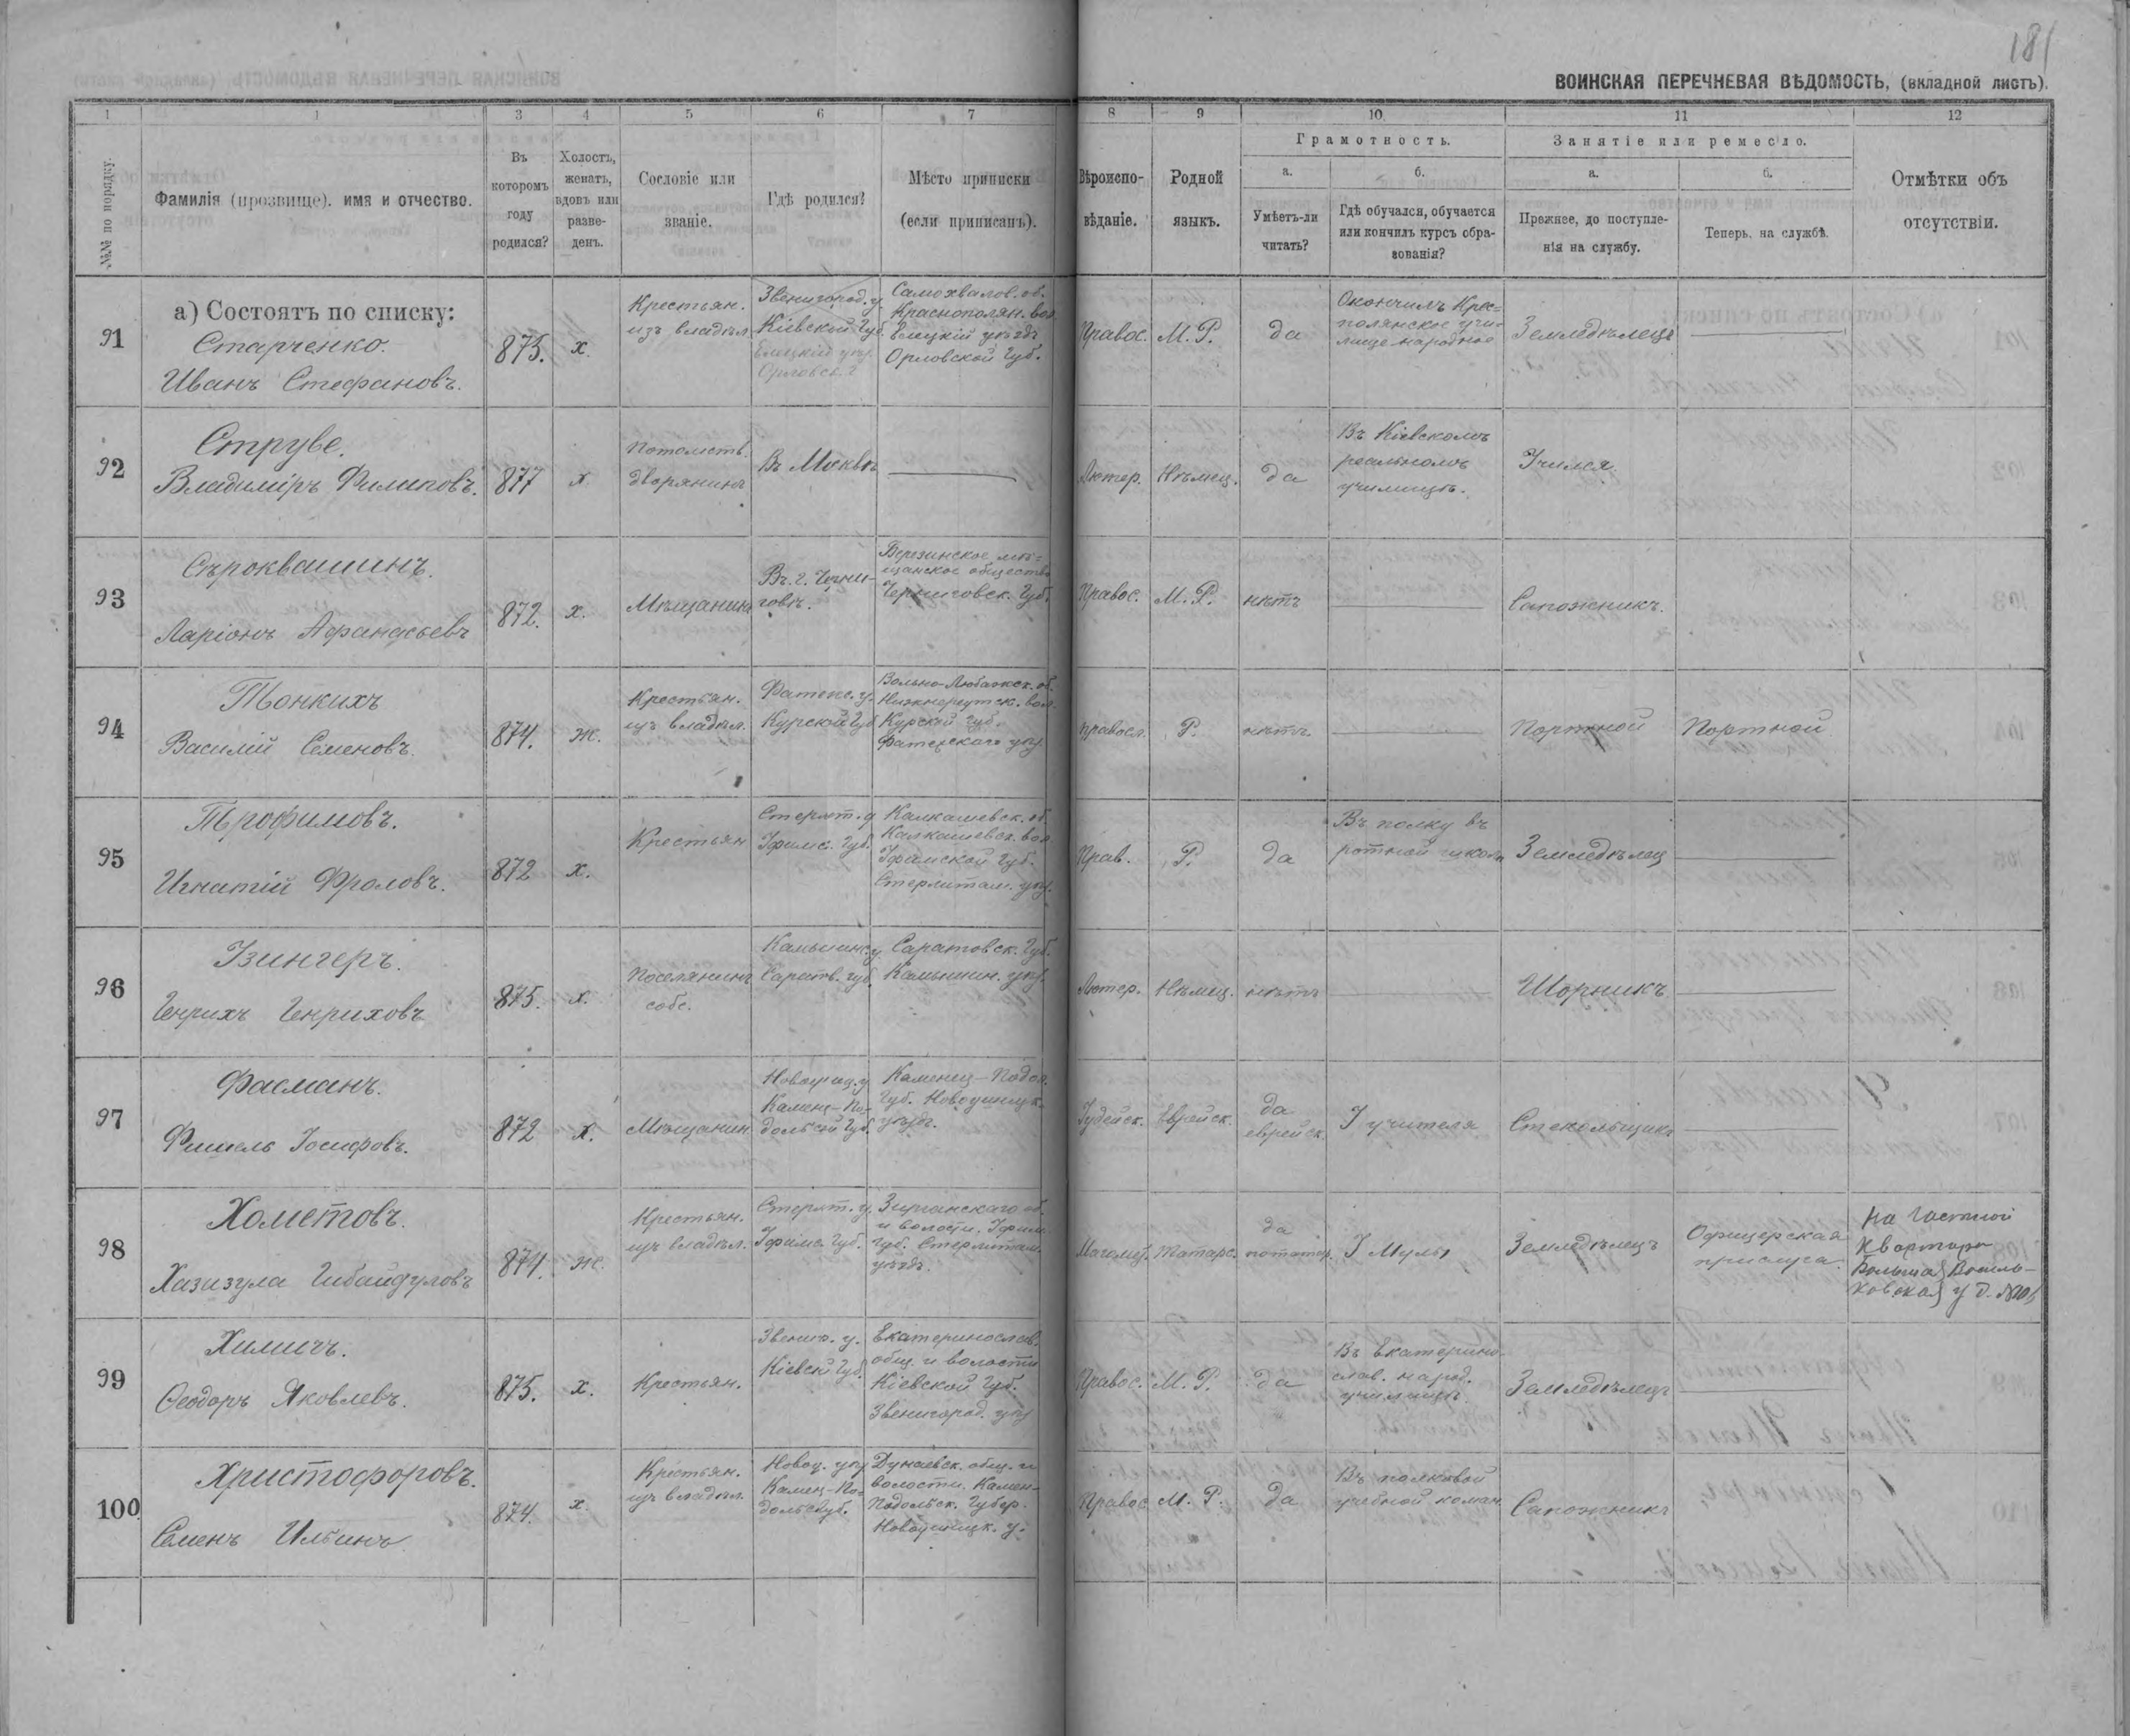 181
ВОИНСКАЯ ПЕРЕЧНЕВАЯ ВѢДОМОСТЬ, (вкладной листъ).
1 1 3 4 5 6 7 8 9 10 11 12
№№ по порядку.
Фамилія (прозвище), имя и отчество.
Въ которомъ году родился?
Холостъ, женатъ, вдовъ или разведенъ.
Сословіе или званіе.
Гдѣ родился?
Мѣсто приписки (если приписанъ).
Вѣроисповѣданіе.
Родной языкъ.
Грамотность.
а. Умѣетъ-ли читать?
б. Гдѣ обучался, обучается или кончилъ курсъ образованія?
Занятіе или ремесло.
а. Прежнее, до поступленія на службу.
б. Теперь, на службѣ.
Отмѣтки объ отсутствіи.
а) Состоятъ по списку:
91
Старченко.
Иванъ Стефановъ.
875.
х.
Крестьян.
изъ владѣл.
Звенигород. у.
Кіевской Губ.
Елецкій уѣз.
Орловск. г.
Самохвалов. об.
Краснополян. вол.
Елецкій уѣздъ
Орловской Губ.
Правос.
М. Р.
да
Окончилъ Крас-
полянское учи-
лище народное
Земледѣлецъ
92
Струве.
Владиміръ Филиповъ.
877
х.
Потомств.
дворянинъ
Въ Москвѣ
Лютер.
Нѣмец.
да
Въ Кіевскомъ
реальномъ
училищѣ.
Учился.
93
Сѣроквашинъ.
Ларіонъ Афанасьевъ
872.
х.
Мѣщанинъ
Въ г. Черни-
говѣ.
Березинское мѣ-
щанское общество
Черниговск. Губ.
Правос.
М. Р.
нѣтъ
Сапожникъ.
94
Тонкихъ
Василій Семеновъ.
874.
ж.
Крестьян.
изъ владѣл.
Фатежс. у.
Курской Губ.
Курской Губ.
Фатежскаго уѣз.
Правосл.
Р.
нѣтъ
Портной
Портной
95
Трофимовъ.
Игнатій Фроловъ.
872
х.
Крестьян
Стерлит. у.
Уфимс. Губ.
Калкашевск. об.
Калкашевск. вол.
Уфимской Губ.
Стерлитам. уѣз.
Прав.
Р.
да
Въ полку въ
ротной школѣ
Земледѣлец
96
Изингеръ.
Генрихъ Генриховъ
875.
х.
Поселянинъ
собс.
Камышинс. у.
Сарат. губ.
Саратовск. Губ.
Камышин. уѣз.
Лютер.
Нѣмец.
нѣтъ
Шорникъ
97
Фасманъ.
Фишель Іосифовъ.
872
х.
Мѣщанин
Новоушиц. у.
Камен-По-
дольской Губ.
Каменец-Подол.
Губ. Новоушицк.
уѣздъ.
Іудейск.
Еврейск.
да
еврейск.
У учителя
Стекольщикъ
98
Хаметовъ.
Хазизула Гибайдуловъ
874.
ж.
Крестьян.
изъ владѣл.
Стерлит. у.
Уфимс. Губ.
Зирганскаго об.
и волости, Уфим.
Губ. Стерлитам.
уѣздъ.
Магомет.
Татарс.
да
потатар.
У Мулы
Земледѣлецъ
Офицерская
прислуга.
На частной
квартирѣ
Большая Василь-
ковская у д. №
99
Химичъ.
Ѳеодоръ Яковлевъ.
875.
х.
Крестьян.
Звениг. у.
Кіевск Губ.
Екатеринослав.
общ. и волости
Кіевской Губ.
Звенигород. уѣз
Правос.
М. Р.
да
Въ Екатерино-
слав. народ.
училищѣ.
Земледѣлецъ
100
Христофоровъ.
Семенъ Ильинъ.
874.
х.
Крестьян.
изъ владѣл.
Новоу. уѣз
Камен-По-
дольс Губ.
Дунаевск. общ. и
волости, Камен-
Подольск. Губер.
Новоушицк. у.
Правос
М. Р.
да
Въ полковой
учебной коман.
Сапожникъ